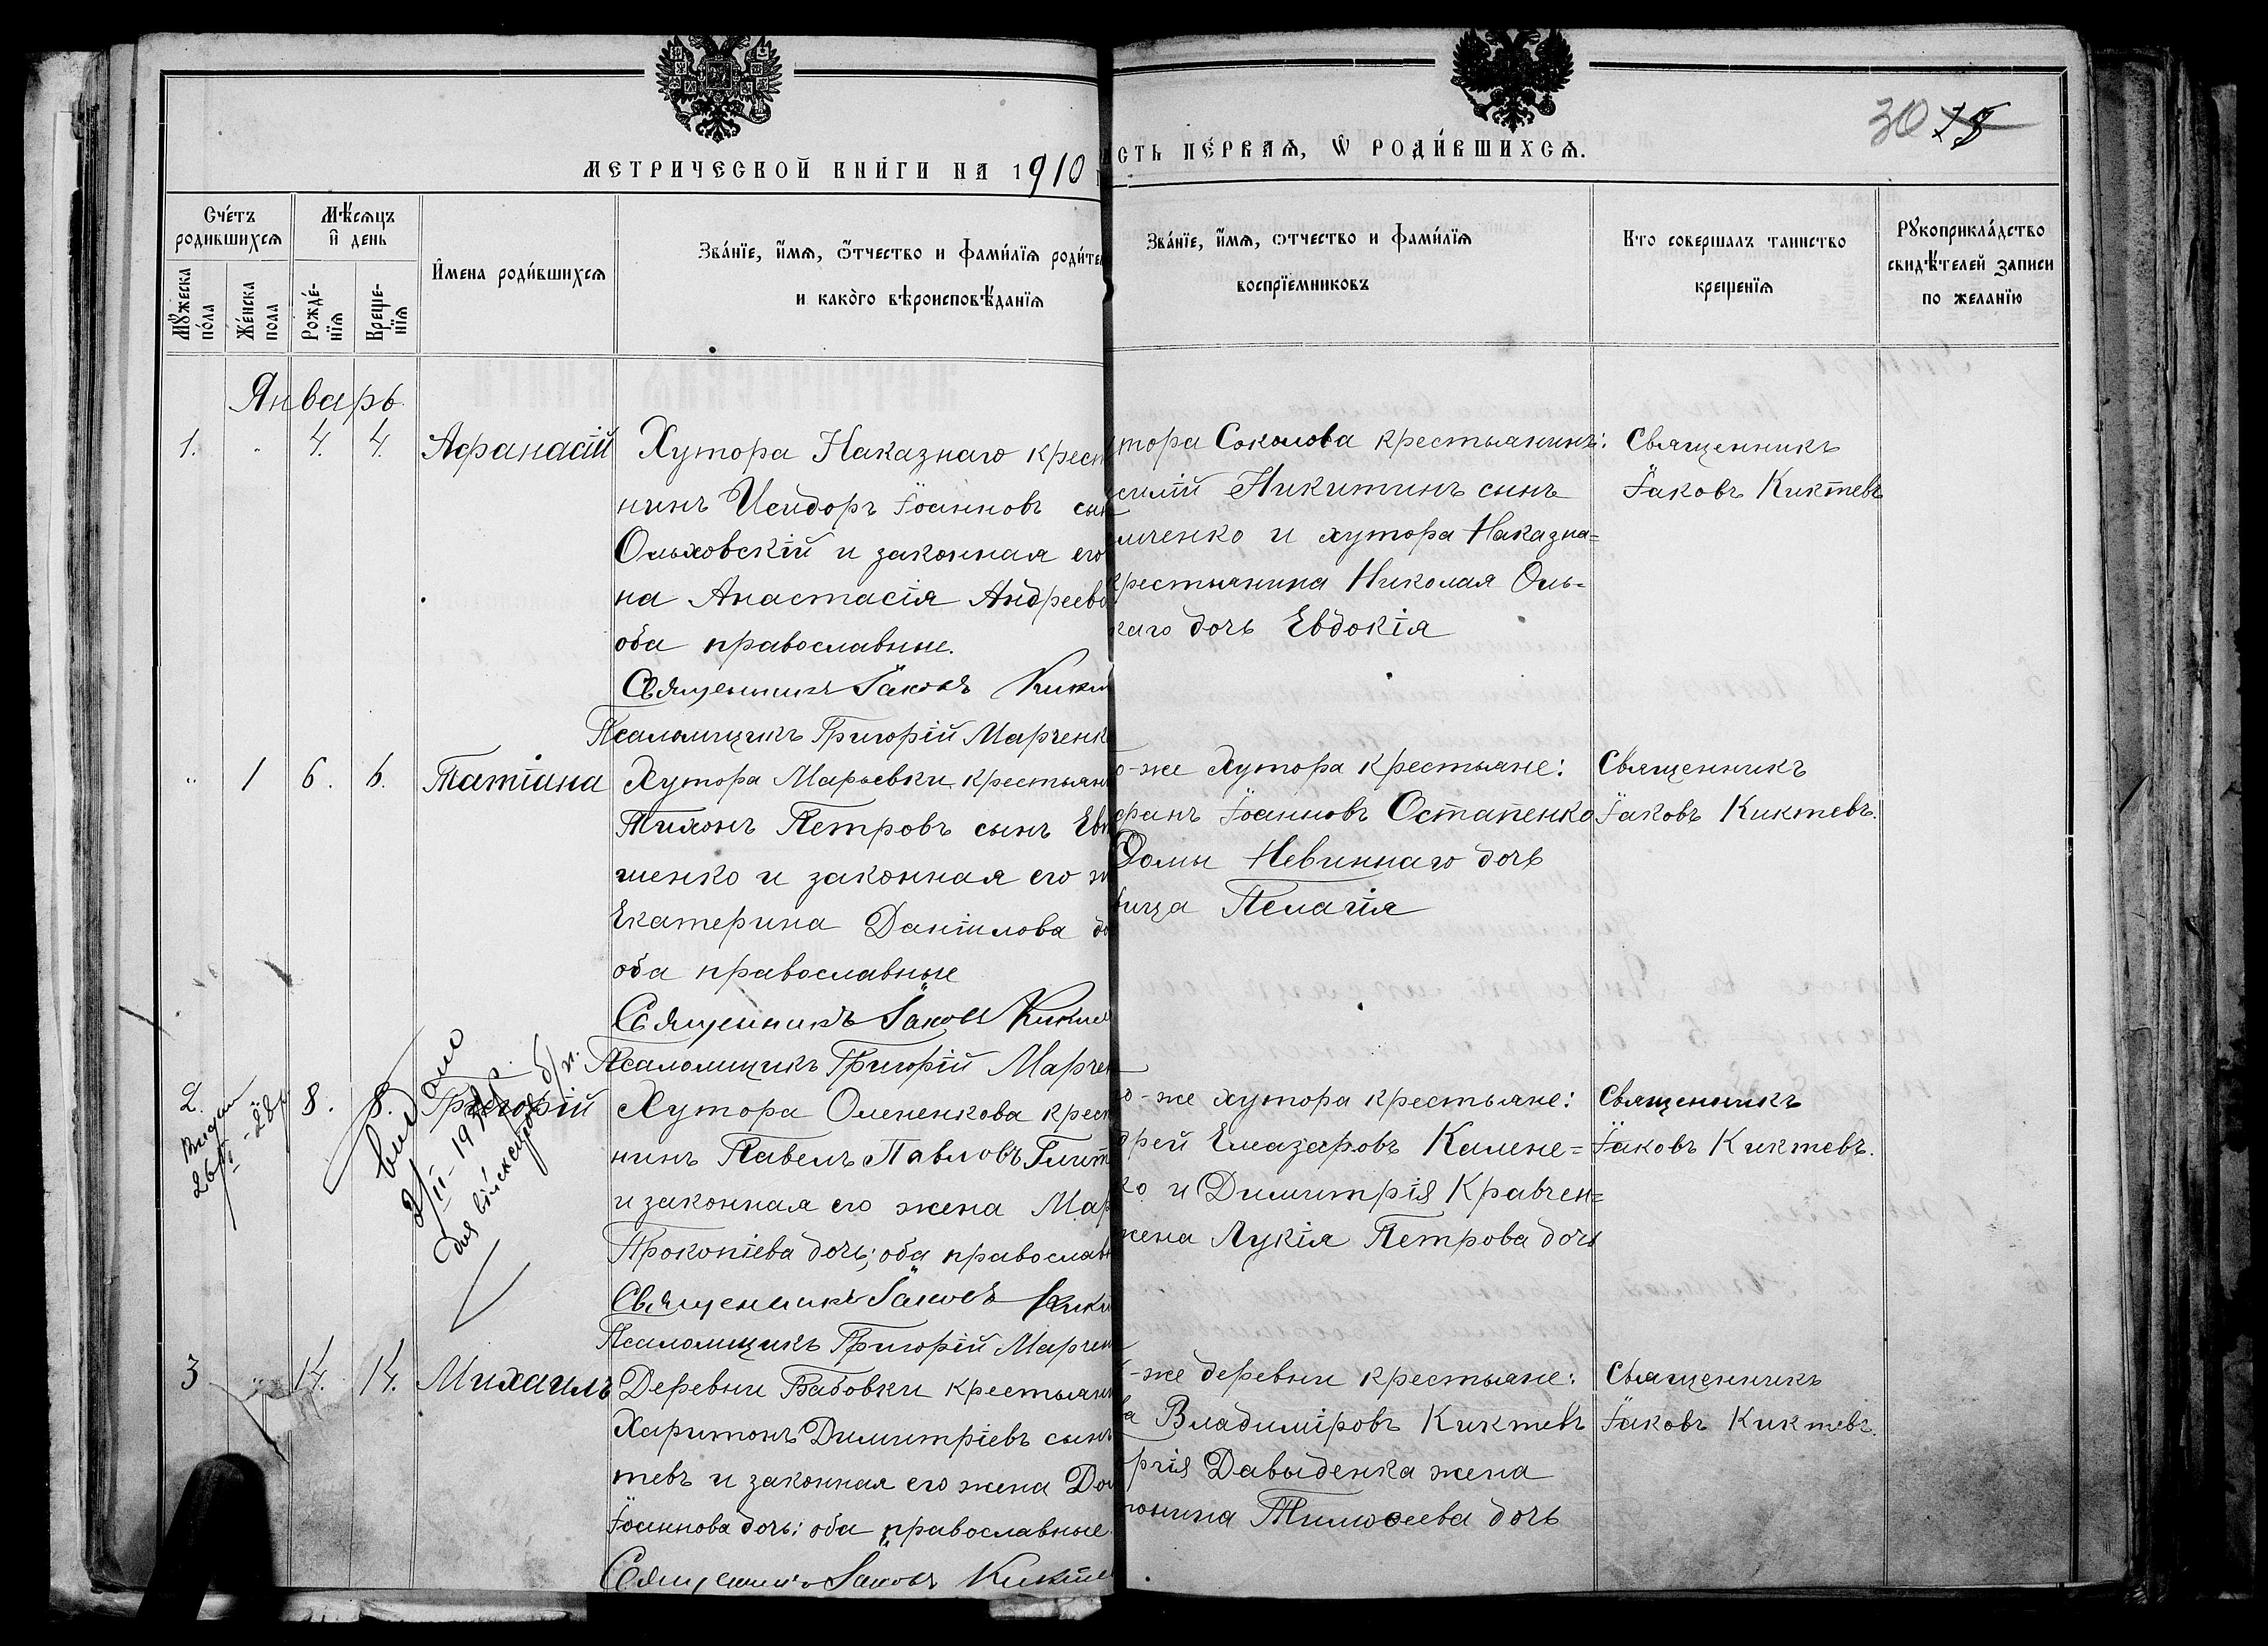 МЕТРИЧЕСКОЙ КНИ́ГИ НА 1910
СТЬ ПЕ́РВАѦ, Ѡ҆ РОДИ́ВШИХСѦ.
30 78
Сче́тъ родившихсѧ
Мѣ́сѧцъ и҆ день
Мꙋ́жеска по́ла
Же́нска пола
Рожде́-нїѧ
Креще-нїѧ
И҆мена роди́вшихсѧ
Зва́нїе, и҆́мѧ, ѻ҆́тчество и фами́лїѧ роди́те
и како́го вѣроисповѣ́данїѧ
Зва́нїе, и҆́мѧ, ѻтчество и фами́лїѧ
воспрїемниковъ
Кто совершалъ таинство
крещенїѧ
Рꙋкоприкла́дство
свидѣ́телей записи
по желанїю
Январь
1. " 4. 4. Афанасій
Хутора Наказнаго крест
нинъ Исидоръ Іоанновъ сын
Ольховскій и законная его
на Анастасія Андреево
оба православные.
Священникъ Іаковъ Кикт
Псаломщикъ Григорій Марченко
тора Соколова крестьянинъ:
силій Никитинъ сынъ
льченко и хутора Наказна=
крестьянина Николая Оль-
каго дочь Евдокія
Священникъ
Іаковъ Киктевъ
" 1 6. 6. Татіана
Хутора Марьевки крестьян
Тихонъ Петровъ сынъ Евт
шенко и законная его ж
Екатерина Даніилова до
оба православные
Священникъ Іаковъ Киктев
Псаломщикъ Григорій Марчен
о-же хутора крестьяне:
фанъ Іоанновъ Остапенко
Ѳомы Невиннаго дочь
вица Пелагія
Священникъ
Іаковъ Киктевъ.
2. 8. 8. Григорій
Видан
26/I-28р
видано
2/II-19
для військстрола б/п.
Хутора Олененкова крест
нинъ Павелъ Павловъ Глит
и законная его жена Мар
Прокопіева дочь; оба православн
Священникъ Іаковъ Кикт
Псаломщикъ Григорій Марчен
о-же хутора крестьяне:
дрей Елеазаровъ Калене=
ко и Димитрія Кравчен=
жена Лукія Петрова дочь
Священникъ
Іаковъ Киктевъ.
3 " 14. 14. Михаилъ
Деревни Бабовки крестьянин
Харитонъ Димитріевъ сынъ
тевъ и законная его жена До
Іоаннова дочь; оба православные.
Священникъ Іаковъ Киктев
-же деревни крестьяне:
ва Владиміровъ Киктевъ
ргія Давыденка жена
тонина Тимоѳеева дочь
Священникъ
Іаковъ Киктевъ.